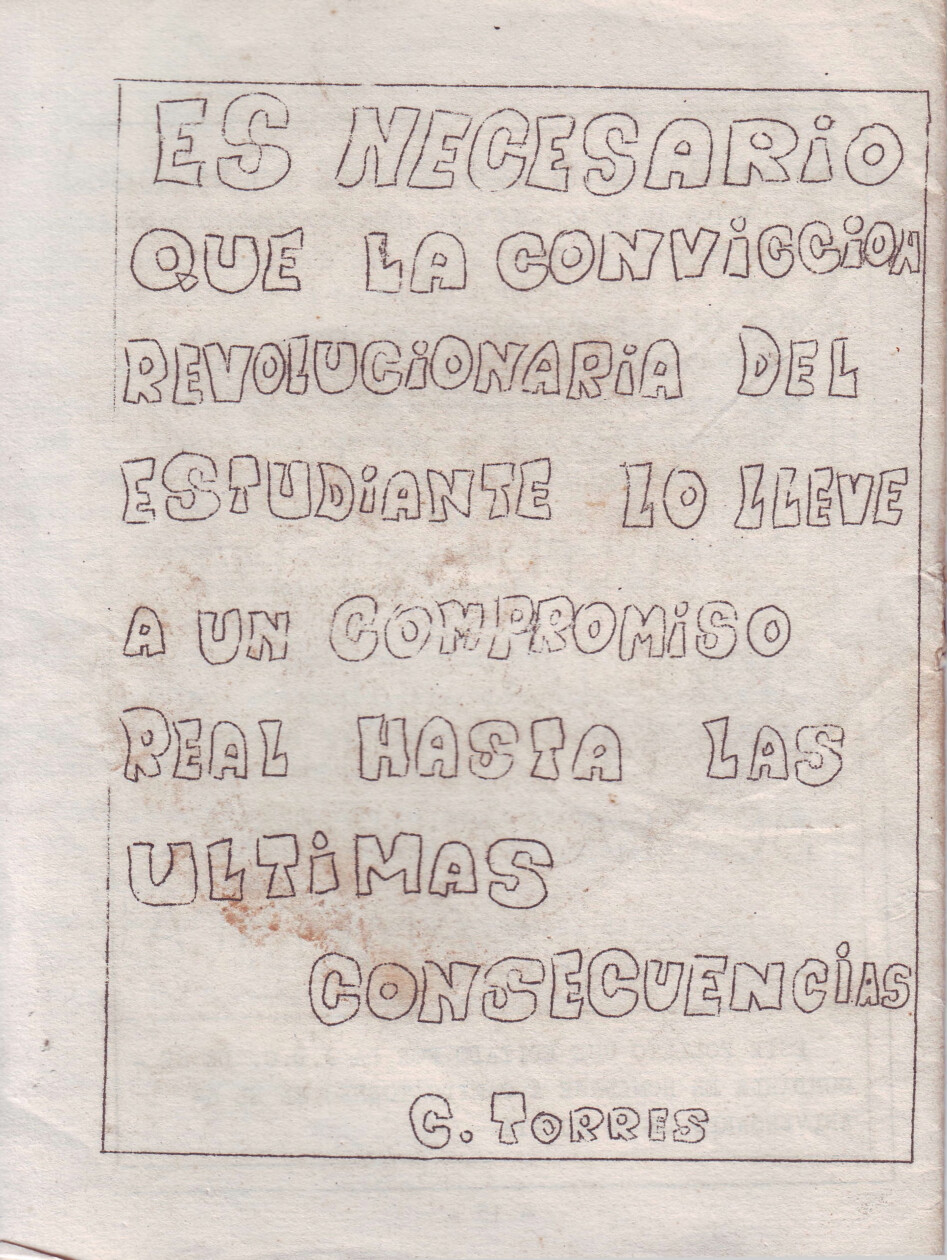 ES NECESARIO
QUE LA CONVICCION
REVOLUCIONARIA DEL
ESTUDIANTE LO LLEVE
A UN COMPROMISO
REAL HASTA LAS
ULTIMAS
CONSECUENCIAS
C. TORRES